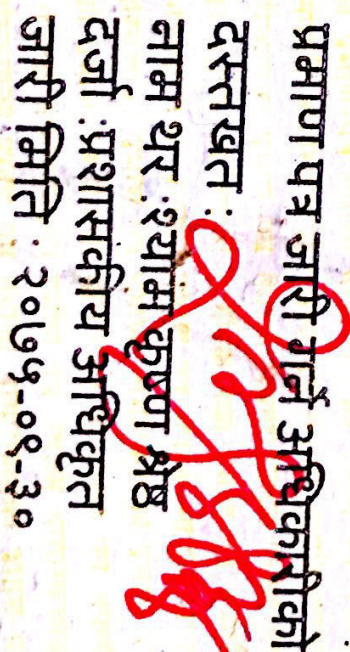 प्रमाण पत्र जारी गर्ने अधिकारीको
दस्तखत :
नाम थर :श्याम कृष्ण श्रेष्ठ
दर्जा :प्रशासकीय अधिकृत
जारी मिति : २०७५-०९-३०